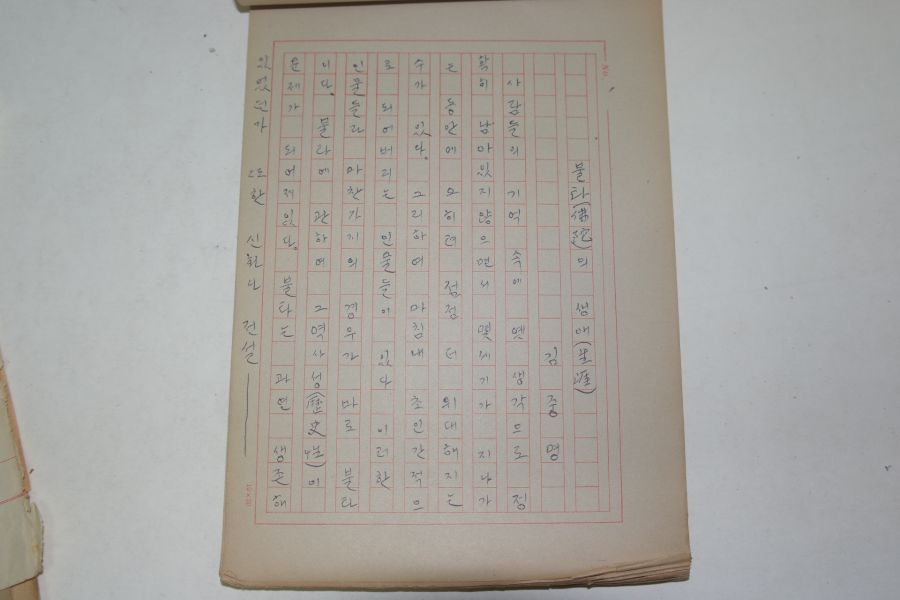 No.
불타(佛陀)의 생애(生涯)
김 중 명
사람들의 기억 속에 옛 생각으로 정
확히 남아있지 않으면서 몇세기가 지나가
는 동안에 오히려 점점 더 위대해지는
수가 있다. 그리하여 마침내 초인간적으
로 되어버리는 인물들이 있다 이러한
인물들과 마찬가지의 경우가 바로 불타
이다. 불타에 관하여 그 역사성(歷史性)이
문제가 되어져 있다. 불타는 과연 생존해
있었던가 또한 신화나 전설 ———